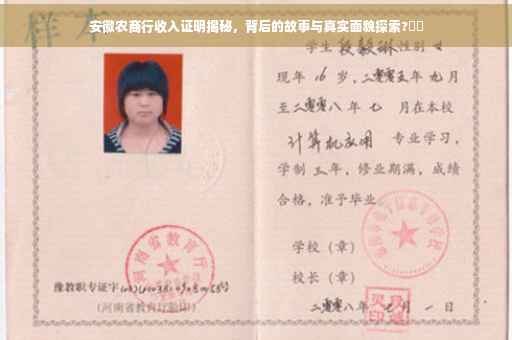 安徽农商行收入证明揭秘，背后的故事与真实面貌探索?
样本
学生 段毅琳 性别 女
现年 16 岁，二零零五年 九 月
至二零零八年 七 月在本校
计算机应用 专业学习，
学制 三 年，修业期满，成绩
合格，准予毕业
学校（章）
校长（章）
二零零八年 七 月 一 日
河南省教育厅
豫教职专证字
（河南省教育厅验印）